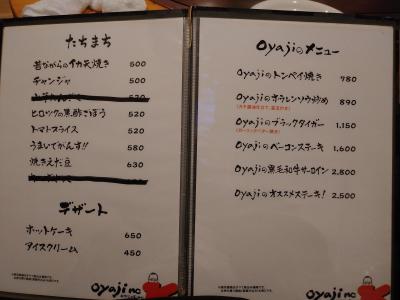 たちまち
昔ながらのイカ天焼き 500
チャンジャ 500
520
ヒロックの黒酢ごぼう 520
トマトスライス 520
うまいでがんす!! 580
焼きえだ豆 630
デザート
ホットケーキ 650
アイスクリーム 450
oyaji no
Oyajiのメニュー
Oyajiのトンペイ焼き 780
Oyajiのホウレンソウ炒め 890
Oyajiのブラックタイガー 1,150
Oyajiのベーコンステーキ 1,600
Oyajiの黒毛和牛サーロイン 2,800
Oyajiのオススメステーキ! 2,500
oyaji no